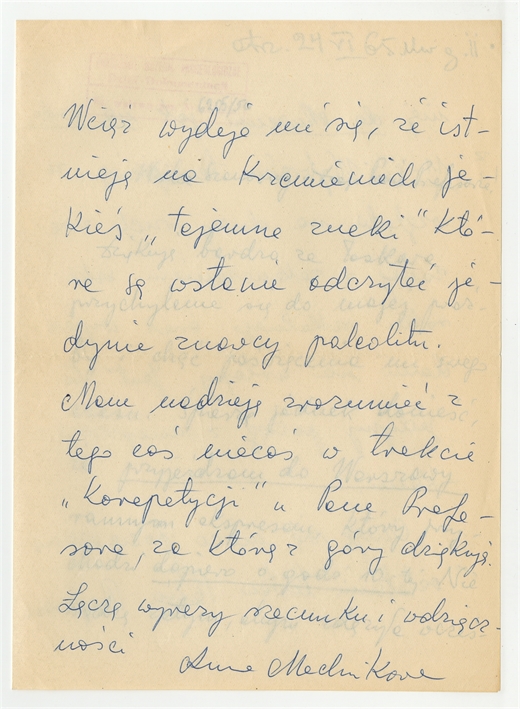 otrz. 24 VI 65
Wciąż wydaje mi się, że ist-
nieją na Krzemieniach ja-
kieś „tajemne znaki" któ-
re są wstanie odczytać je-
dynie znawcy paleolitu.
Mam nadzieję zrozumieć z
tego coś niecoś w trakcie
„Korepetycji" u Pana Profe-
sora, za którą z góry dziękuję.
Łączę wyrazy szacunku i wdzięcz-
ności Anna Mednikova